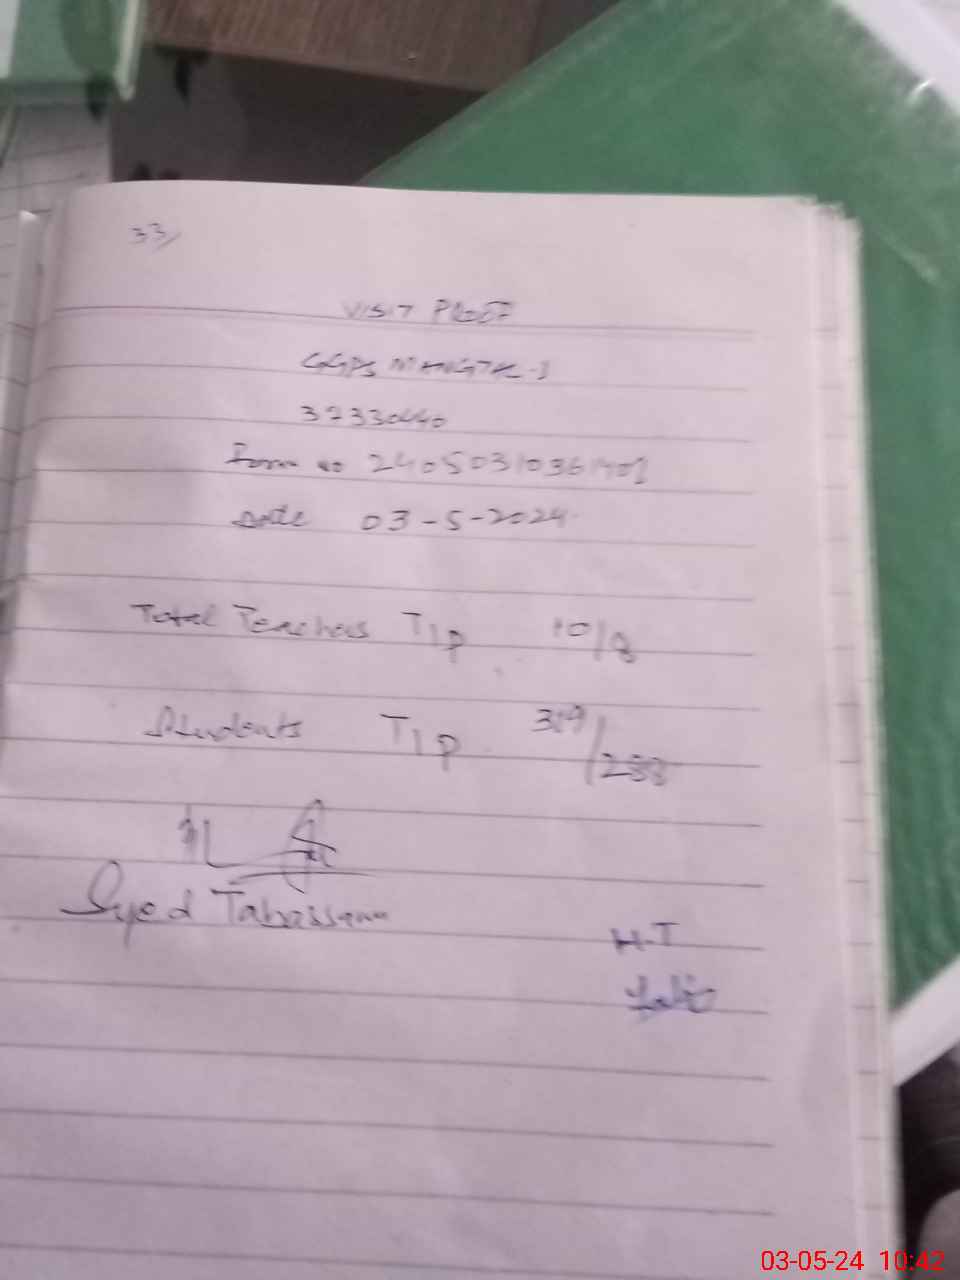 33/
VISIT PROOF
GGPS
37330440
Form no
Date 03-5-2024
Total Teachers T/P 10/8
Students T/P 319/288
Syed Tabassam
H.T
03-05-24 10:42